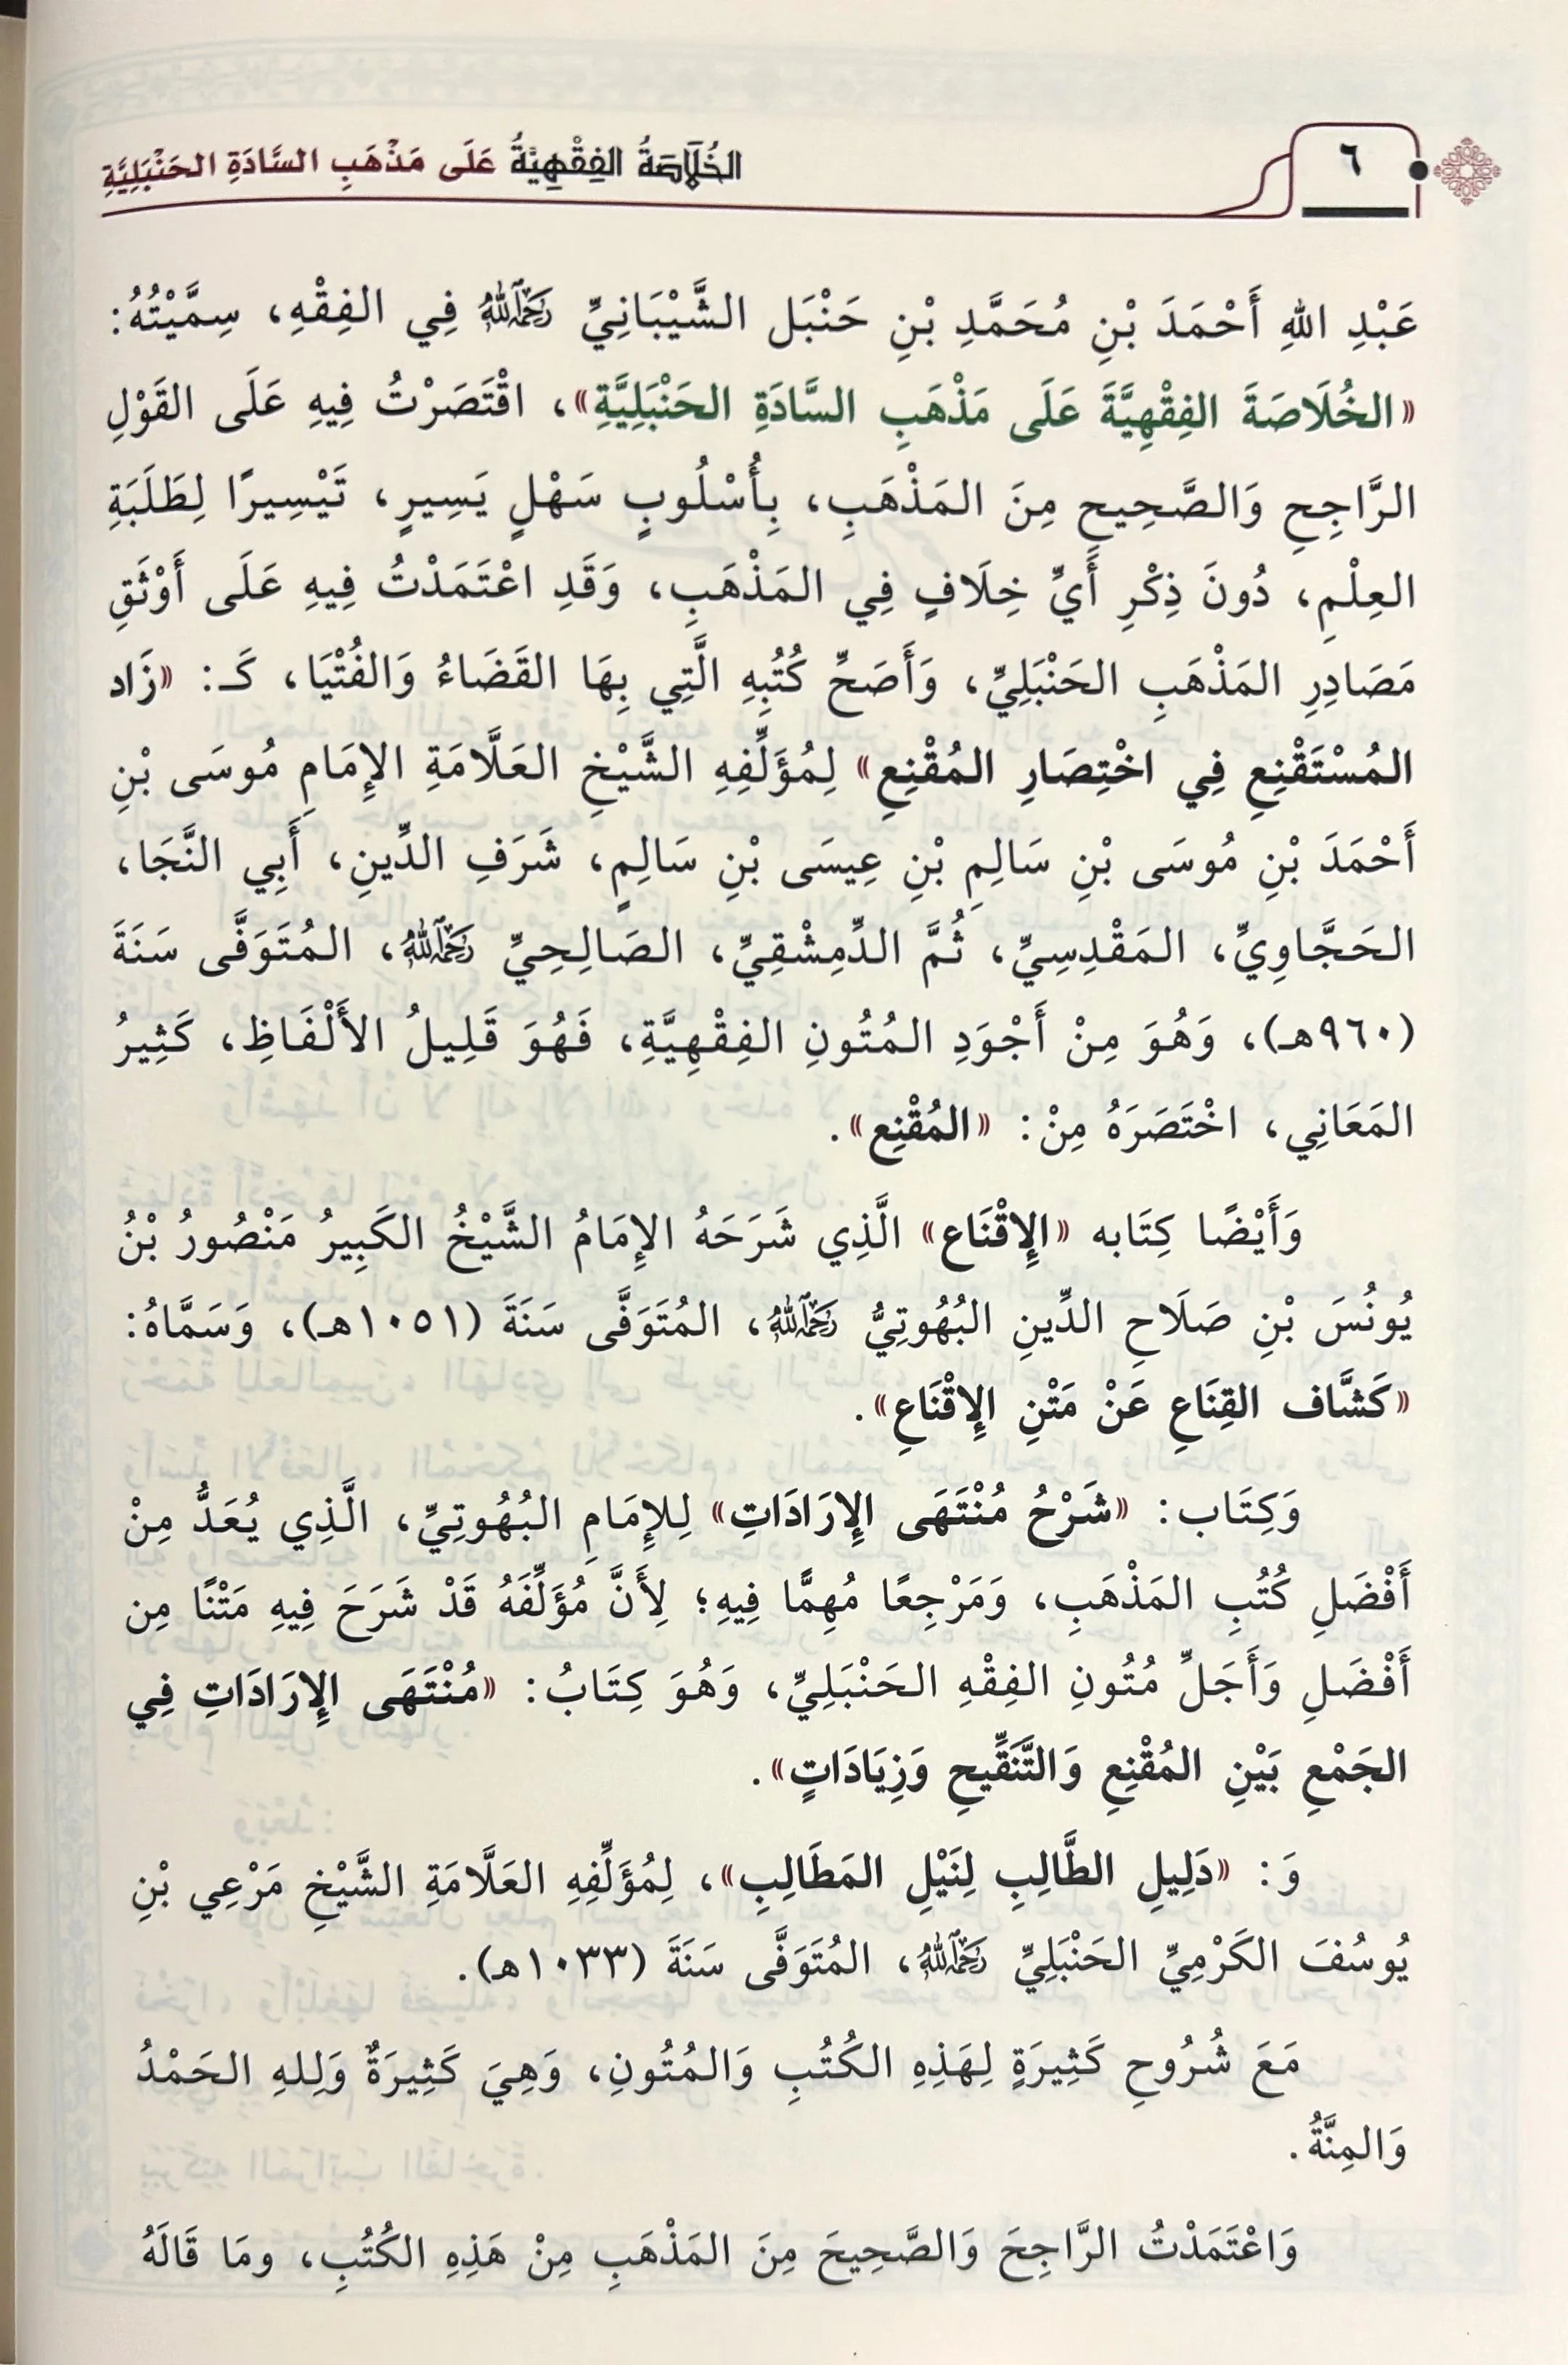 ٦
الخُلَاصَةُ الفِقْهِيَّةُ عَلَى مَذْهَبِ السَّادَةِ الحَنْبَلِيَّةِ
عَبْدِ اللهِ أَحْمَدَ بْنِ مُحَمَّدِ بْنِ حَنْبَل الشَّيْبَانِيِّ رَحِمَهُ اللهُ فِي الفِقْهِ، سِمَّيْتُهُ:
«الخُلَاصَةَ الفِقْهِيَّةَ عَلَى مَذْهَبِ السَّادَةِ الحَنْبَلِيَّةِ»، اقْتَصَرْتُ فِيهِ عَلَى القَوْلِ
الرَّاجِحِ وَالصَّحِيحِ مِنَ المَذْهَبِ، بِأُسْلُوبٍ سَهْلٍ يَسِيرٍ، تَيْسِيرًا لِطَلَبَةِ
العِلْمِ، دُونَ ذِكْرِ أَيِّ خِلَافٍ فِي المَذْهَبِ، وَقَدِ اعْتَمَدْتُ فِيهِ عَلَى أَوْثَقِ
مَصَادِرِ المَذْهَبِ الحَنْبَلِيِّ، وَأَصَحِّ كُتُبِهِ الَّتِي بِهَا القَضَاءُ وَالفُتْيَا، كَـ: «زَاد
المُسْتَقْنِعِ فِي اخْتِصَارِ المُقْنِعِ» لِمُؤَلِّفِهِ الشَّيْخِ العَلَّامَةِ الإِمَامِ مُوسَى بْنِ
أَحْمَدَ بْنِ مُوسَى بْنِ سَالِمِ بْنِ عِيسَى بْنِ سَالِمٍ، شَرَفِ الدِّينِ، أَبِي النَّجَا،
الحَجَّاوِيِّ، المَقْدِسِيِّ، ثُمَّ الدِّمِشْقِيِّ، الصَالِحِيِّ رَحِمَهُ اللهُ، المُتَوَفَّى سَنَةَ
(٩٦٠هـ)، وَهُوَ مِنْ أَجْوَدِ المُتُونِ الفِقْهِيَّةِ، فَهُوَ قَلِيلُ الأَلْفَاظِ، كَثِيرُ
المَعَانِي، اخْتَصَرَهُ مِنْ: «المُقْنِع».
وَأَيْضًا كِتَابه «الإِقْنَاع» الَّذِي شَرَحَهُ الإِمَامُ الشَّيْخُ الكَبِيرُ مَنْصُورُ بْنُ
يُونُسَ بْنِ صَلَاحِ الدِّينِ البُهُوتِيُّ رَحِمَهُ اللهُ، المُتَوَفَّى سَنَةَ (١٠٥١هـ)، وَسَمَّاهُ:
«كَشَّاف القِنَاعِ عَنْ مَتْنِ الإِقْنَاعِ».
وَكِتَاب: «شَرْحُ مُنْتَهَى الإِرَادَاتِ» لِلإِمَامِ البُهُوتِيِّ، الَّذِي يُعَدُّ مِنْ
أَفْضَلِ كُتُبِ المَذْهَبِ، وَمَرْجِعًا مُهِمًّا فِيهِ؛ لِأَنَّ مُؤَلِّفَهُ قَدْ شَرَحَ فِيهِ مَتْنًا مِن
أَفْضَلِ وَأَجَلِّ مُتُونِ الفِقْهِ الحَنْبَلِيِّ، وَهُوَ كِتَابُ: «مُنْتَهَى الإِرَادَاتِ فِي
الجَمْعِ بَيْنِ المُقْنِعِ وَالتَّنَقِّيحِ وَزِيَادَاتٍ».
وَ: «دَلِيلِ الطَّالِبِ لِنَيْلِ المَطَالِبِ»، لِمُؤَلِّفِهِ العَلَّامَةِ الشَّيْخِ مَرْعِي بْنِ
يُوسُفَ الكَرْمِيِّ الحَنْبَلِيِّ رَحِمَهُ اللهُ، المُتَوَفَّى سَنَةَ (١٠٣٣هـ).
مَعَ شُرُوحِ كَثِيرَةٍ لِهَذِهِ الكُتُبِ وَالمُتُونِ، وَهِيَ كَثِيرَةٌ وَلِلهِ الحَمْدُ
وَالمِنَّةُ.
وَاعْتَمَدْتُ الرَّاجِحَ وَالصَّحِيحَ مِنَ المَذْهَبِ مِنْ هَذِهِ الكُتُبِ، ومَا قَالَهُ